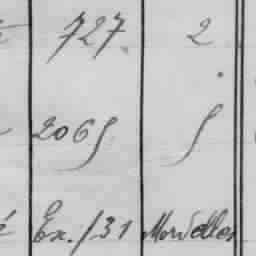 727. 2
2065 5
Ex. /31 Mordelles